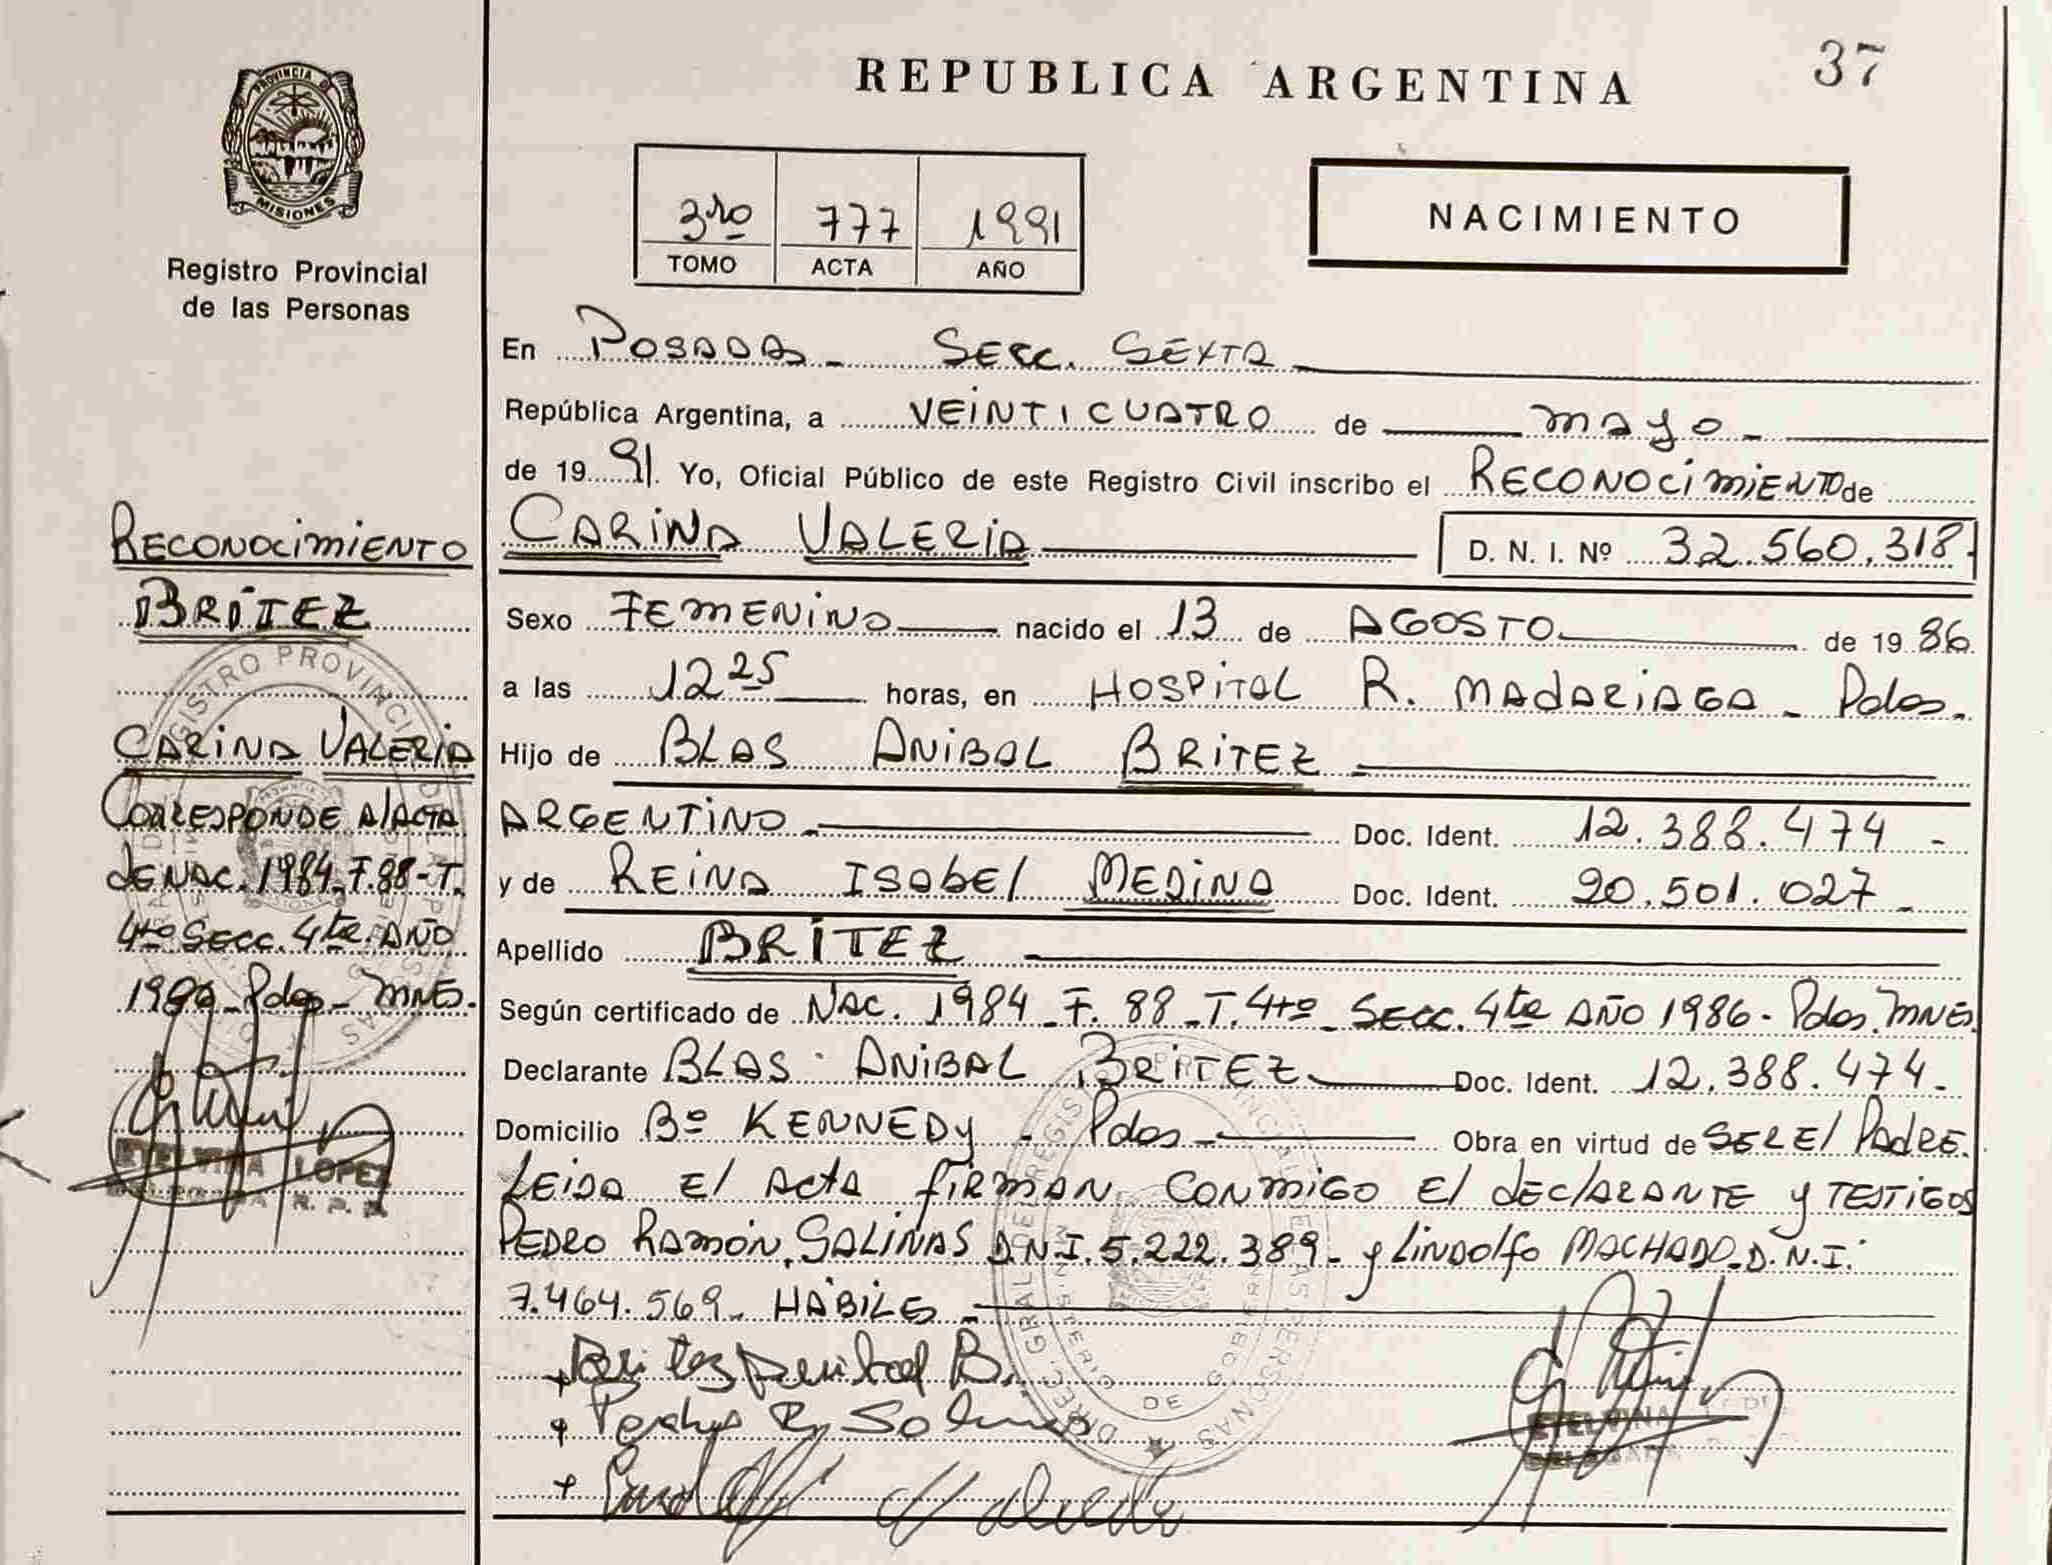 REPUBLICA ARGENTINA
37
PROVINCIA DE
MISIONES
Registro Provincial
de las Personas
3ro 777 1991
TOMO ACTA AÑO
NACIMIENTO
En Posadas - Secc. Sexta
República Argentina, a VEINTICUATRO de mayo
de 1991. Yo, Oficial Público de este Registro Civil inscribo el RECONOCIMIENTO de
CARINA VALERIA D. N. I. Nº 32.560.318.
Sexo FEMENINO nacido el 13 de AGOSTO de 1986
a las 12 25 horas, en HOSPITAL R. MADARIAGA - Pdas.
Hijo de BLAS ANIBAL BRITEZ
ARGENTINO Doc. Ident. 12.388.474 -
y de REINA ISABEL MEDINA Doc. Ident. 20.501.027 -
Apellido BRITEZ
Según certificado de NAC. 1984 - F. 88 - T. 4to - Secc. 4ta AÑO 1986 - Pdas. MNES.
Declarante BLAS ANIBAL BRITEZ Doc. Ident. 12.388.474.
Domicilio Bº KENNEDY - Pdas - Obra en virtud de SER El PADRE.
LEIDA El ActA fIRMAN CONMIGO El dEClARANTE y TESTIGOS
PEDRO RAMÓN, SALINAS D.N.I. 5.222.389 - y LINDOlfo MACHADO - D.N.I.
7.464.569 - HÁBILES
RECONOCIMIENTO
BRITEZ
CARINA VALERIA
CORRESPONDE A/ACTA
dE NAC. 1984 - F. 88 - T.
4to Secc. 4ta AÑO
1986 - Pdas - MNES.
ETELVINA LOPEZ
DIREC. GRAL. DE REGISTRO PROVINCIAL DE LAS PERSONAS
MINISTERIO DE GOBIERNO
ETELVINA
DELEGADA